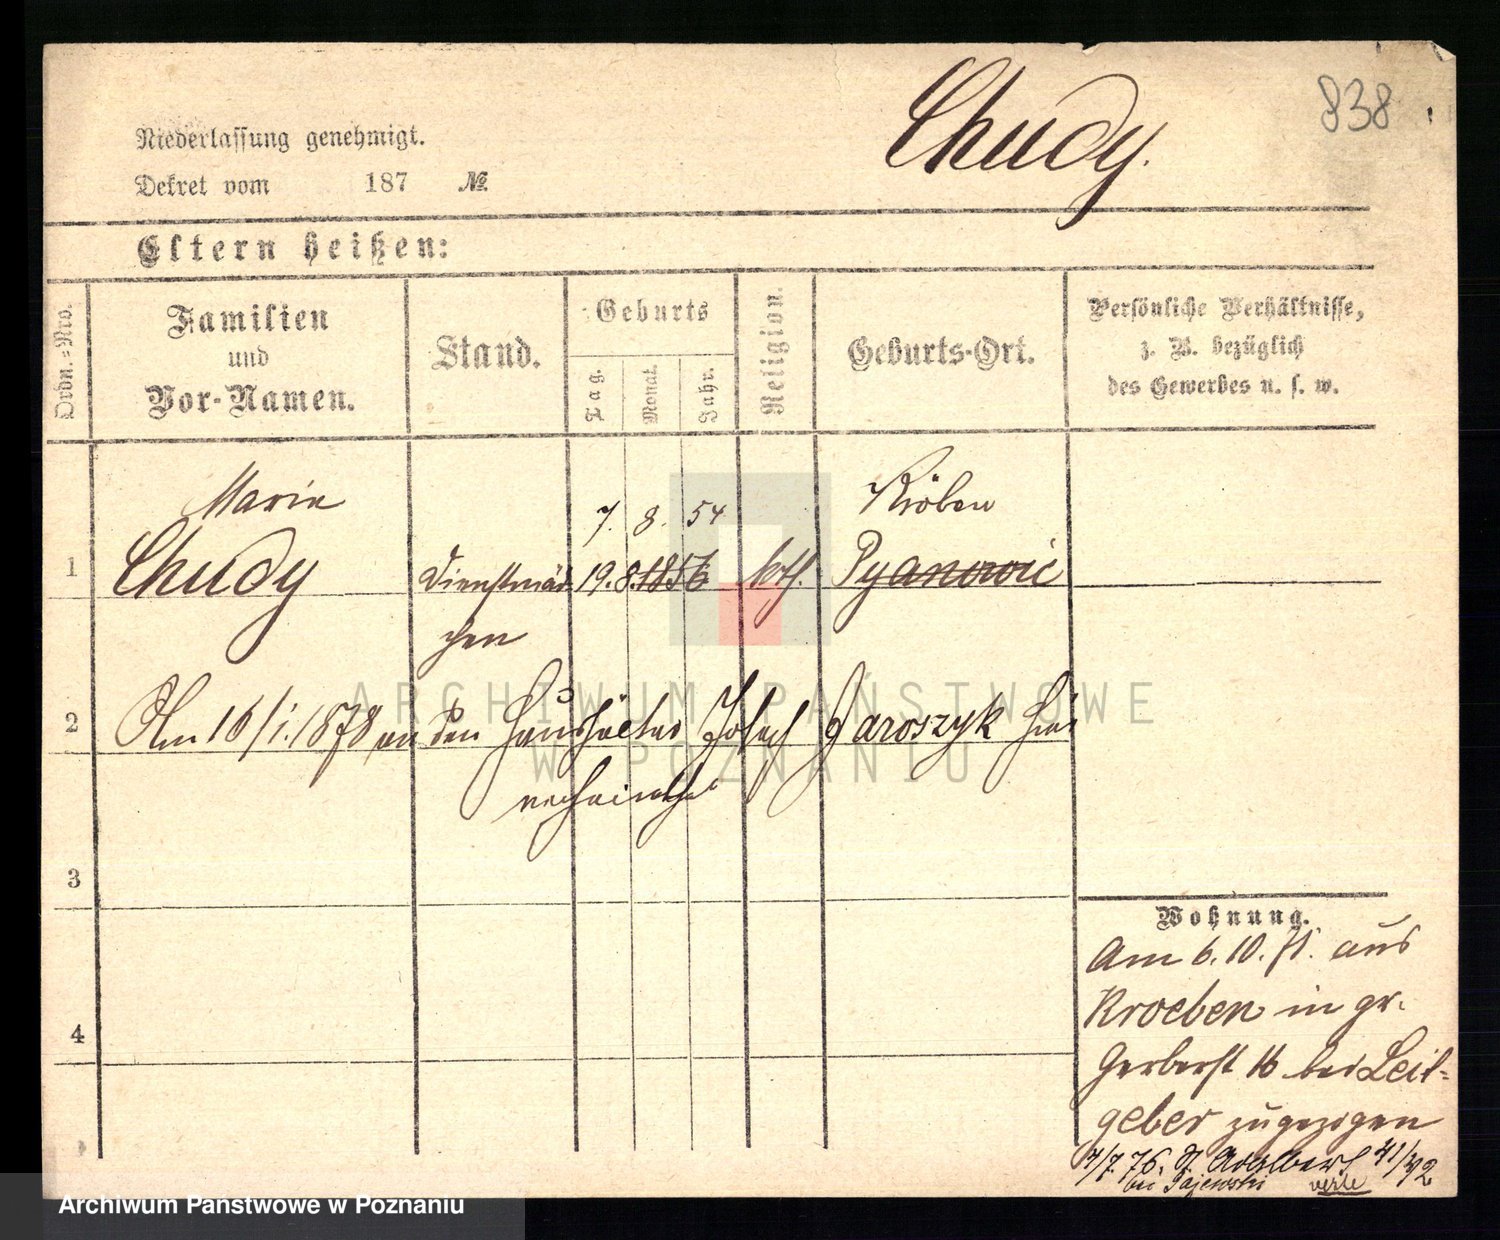 838
Chudy.
Niederlassung genehmigt.
Dekret vom 187 №
Eltern heißen:
Ordn.=Nro.
Familien
und
Vor-Namen.
Stand.
Geburts
Tag.
Monat.
Jahr.
Religion.
Geburts-Ort.
Persönliche Verhältnisse,
z. B. bezüglich
des Gewerbes u. s. w.
Marie
7. 8. 54
Kröben
1 Chudy Dienstmäd 19. 8. 1856 kath. Pyanowic
chen
2 Am 16/1.1878 an den Haushälter Josef Jaroszyk hier
verheirathet
3
4
Wohnung.
Am 6.10.71. aus
Kroeben in gr.
Gerberst 16 bei Leit-
geber zugezogen
4/7. 76. St. Adalbert 41/42
bei Pajewski verte
ARCHIWUM PAŃSTWOWE
W POZNANIU
Archiwum Państwowe w Poznaniu